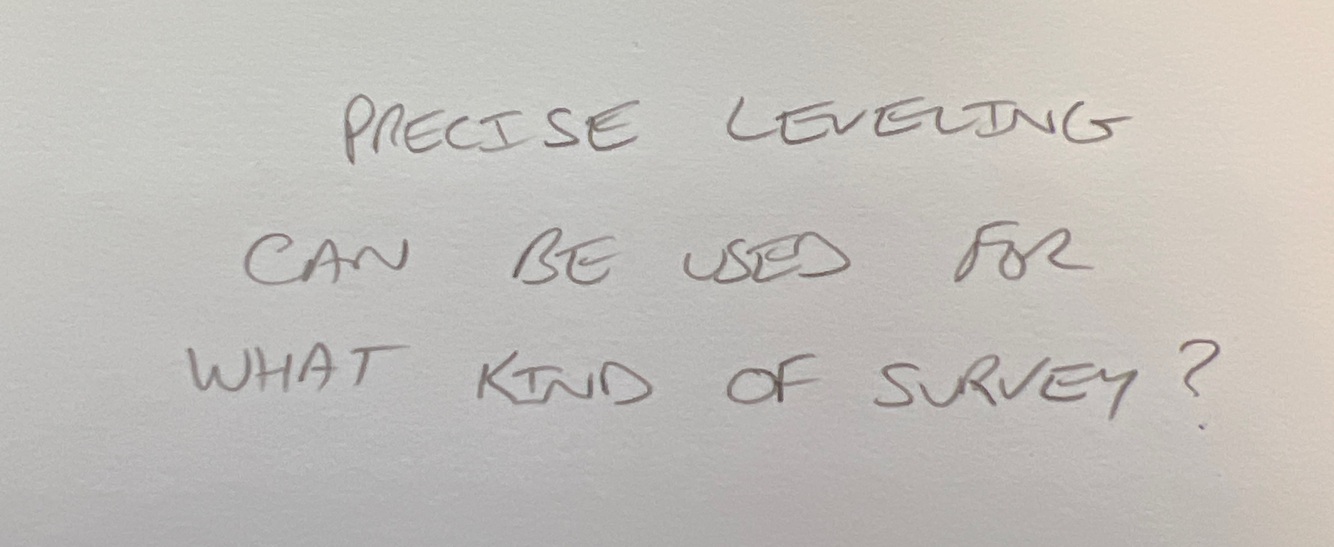 PRECISE LEVELING
CAN BE USED FOR
WHAT KIND OF SURVEY?